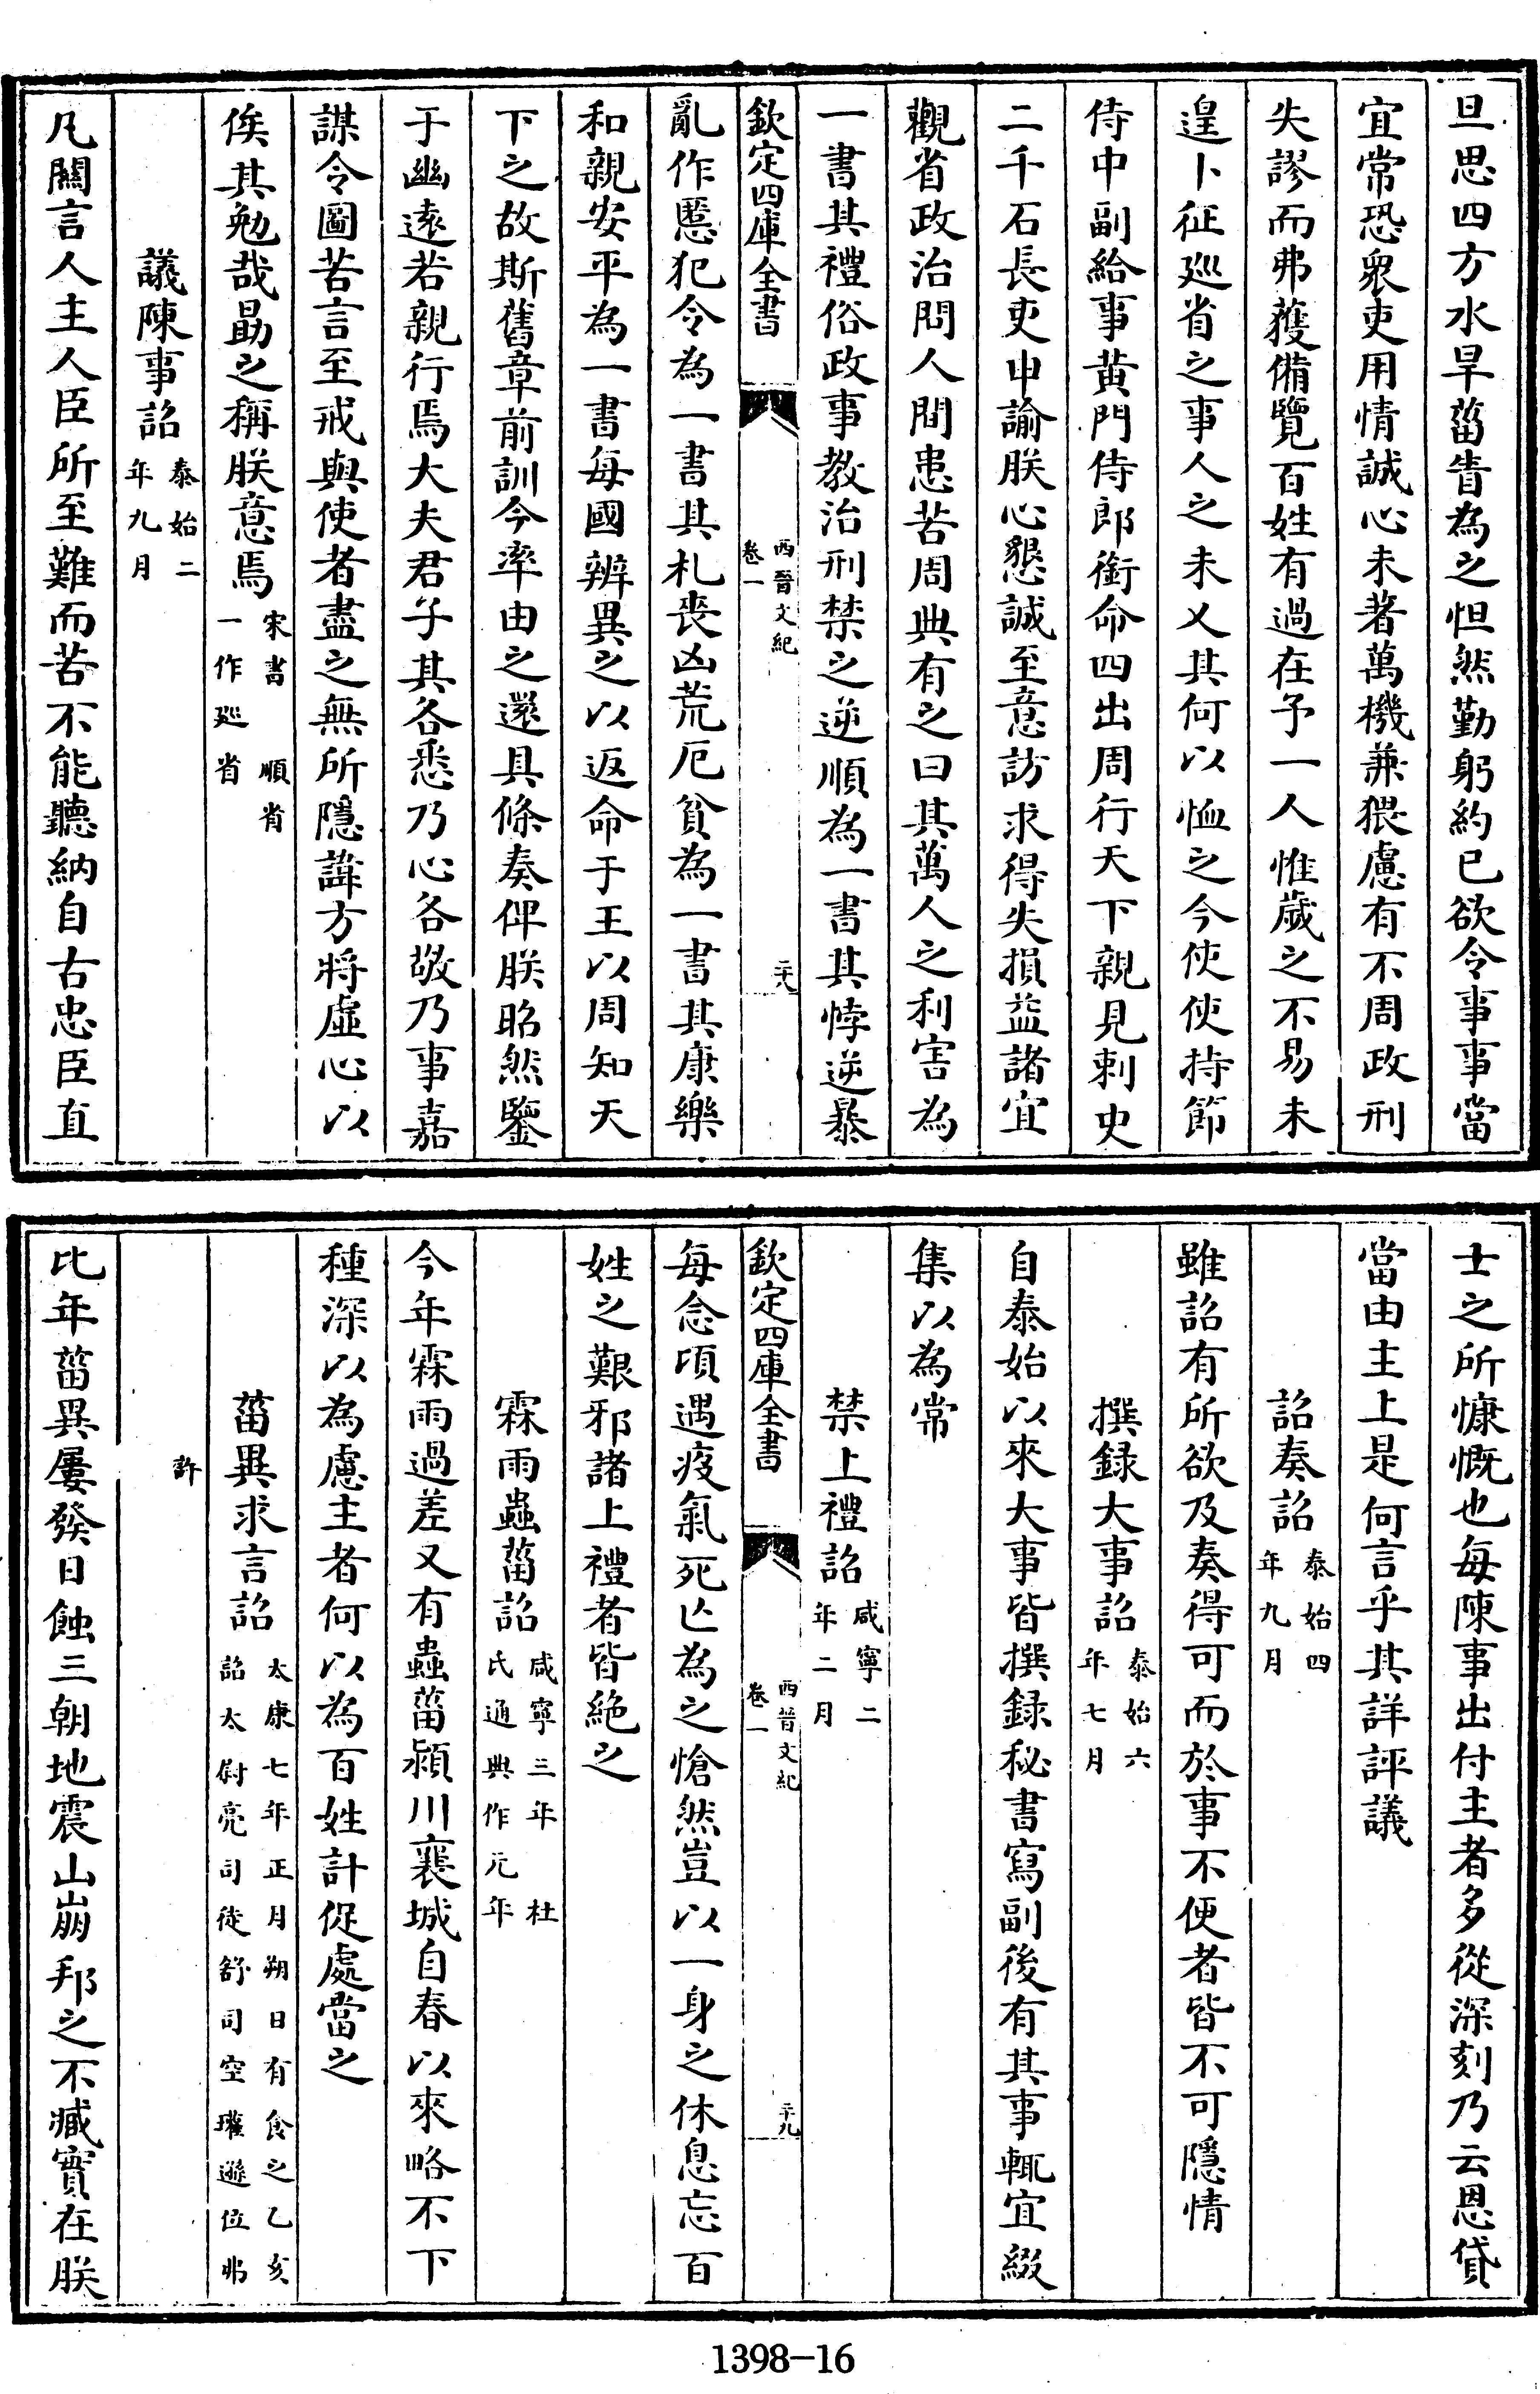 旦思四方水旱菑眚為之怛然勤躬約已欲令事事當
宜常恐衆吏用情誠心未著萬機兼猥慮有不周政刑
失謬而弗獲備覽百姓有過在予一人惟歲之不易未
遑卜征廵省之事人之未乂其何以恤之今使使持節
侍中副給事黄門侍郎銜命四出周行天下親見刺史
二千石長吏申諭朕心懇誠至意訪求得失損益諸宜
觀省政治問人間患苦周典有之曰其萬人之利害為
一書其禮俗政事教治刑禁之逆順為一書其悖逆暴
欽定四庫全書
西晉文紀
卷一
二十八
亂作慝犯令為一書其札喪凶荒厄貧為一書其康樂
和親安平為一書每國辨異之以返命于王以周知天
下之故斯舊章前訓今率由之還具條奏俾朕昭然鑒
于幽逺若親行焉大夫君子其各悉乃心各敬乃事嘉
謀令圖苦言至戒與使者盡之無所隱諱方將虛心以
俟其勉哉勗之稱朕意焉
宋書 順省
一作廵省
議陳事詔
泰始二
年九月
凡關言人主人臣所至難而苦不能聽納自古忠臣直
士之所慷慨也每陳事出付主者多從深刻乃云恩貸
當由主上是何言乎其詳評議
詔奏詔
泰始四
年九月
雖詔有所欲及奏得可而於事不便者皆不可隱情
撰録大事詔
泰始六
年七月
自泰始以來大事皆撰録秘書寫副後有其事輒宜綴
集以為常
禁上禮詔
咸寧二
年二月
欽定四庫全書
西晉文紀
卷一
二十九
每念頃遇疫氣死亡為之愴然豈以一身之休息忘百
姓之艱邪諸上禮者皆絶之
霖雨蟲菑詔
咸寧三年 杜
氏通典作元年
今年霖雨過差又有蟲菑潁川襄城自春以來略不下
種深以為慮主者何以為百姓計促處當之
菑異求言詔
太康七年正月朔日有食之乙亥
詔太尉亮司徒舒司空瓘遜位弗
許
比年菑異屢發日蝕三朝地震山崩邦之不臧實在朕
1398-16